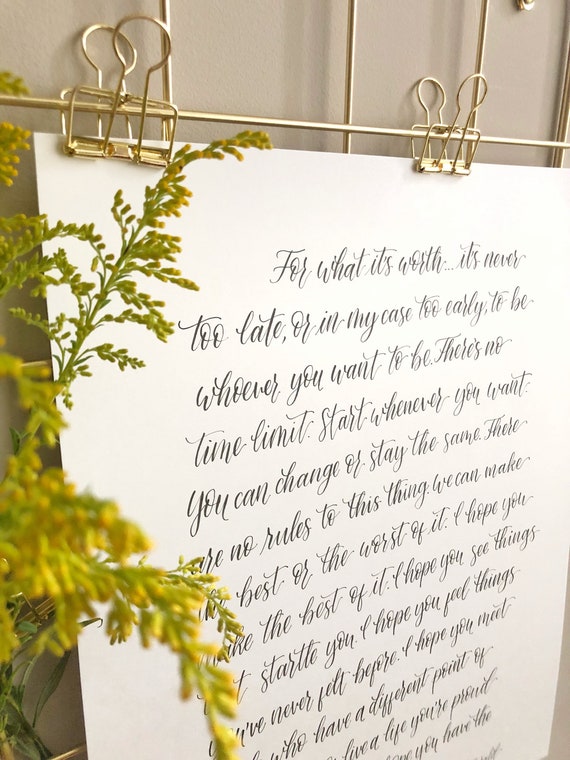 For what it's worth... it's never
too late, or in my case too early, to be
whoever you want to be. There's no
time limit. Start whenever you want.
You can change or stay the same. There
are no rules to this thing. we can make
the best or the worst of it. I hope you
make the best of it. I hope you see things
that startle you. I hope you feel things
you've never felt before. I hope you meet
who have a different point of
live a life you're proud
hope you have the